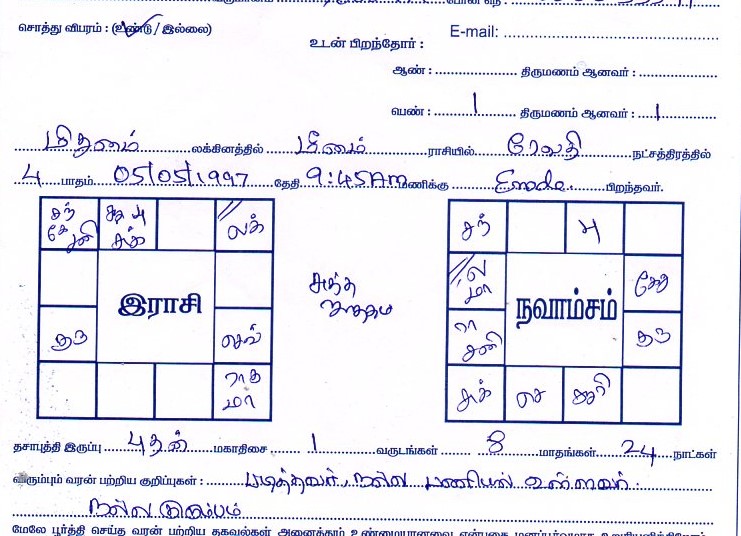 சொத்து விபரம் : (உண்டு / இல்லை)
உடன் பிறந்தோர் :
E-mail:
ஆண் : திருமணம் ஆனவர் :
பெண் : 1 திருமணம் ஆனவர் : 1
மிதுனம் லக்கினத்தில் மீனம் ராசியில் ரேவதி நட்சத்திரத்தில்
4 பாதம் 05/05/1997 தேதி 9:45AM மணிக்கு Erode. பிறந்தவர்.
சந் கே சனி
சூ பு சுக்
லக்
குரு
செவ்
ராகு மா
இராசி
சந்
பு
ல மா
கேது
ரா சனி
குரு
சுக்
செ
சூரி
நவாம்சம்
தசாபுத்தி இருப்பு புதன் மகாதிசை 1 வருடங்கள் 8 மாதங்கள் 24 நாட்கள்
விரும்பும் வரன் பற்றிய குறிப்புகள் : படித்தவர், நல்ல பணியில் உள்ளவர்
நல்ல குடும்பம்
மேலே பூர்த்தி செய்த வரன் பற்றிய தகவல்கள் அனைத்தும் உண்மையானவை என்பதை